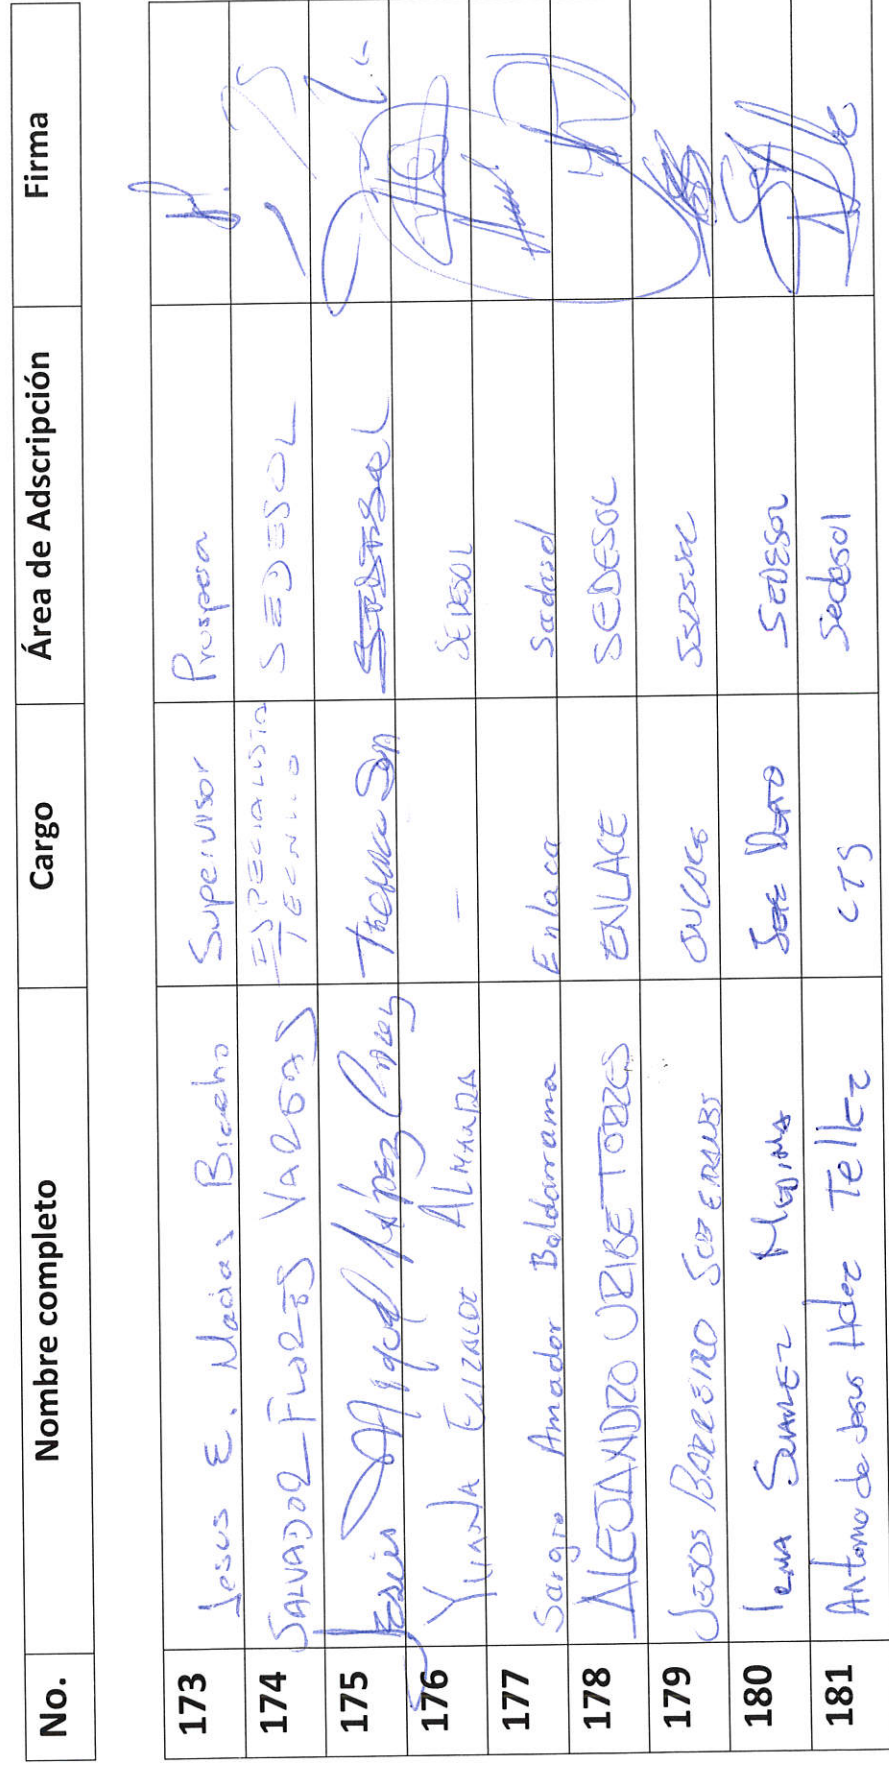 No. Nombre completo Cargo Área de Adscripción Firma
173 Jesus E. Macias Supervisor Prospera
174 SALVADOR FLORES VARGAS ESPECIALISTA TECNICO SEDESOL
175 Jesús Miguel López SEDESOL
176 YLIANA ELIZALDE ALMANZA — SEDESOL
177 Sergio Amador Balderrama Enlace Sedesol
178 ALEJANDRO URIBE TORRES ENLACE SEDESOL
179 JESUS BARREIRO
180 IRMA SUAREZ MEDINA JEFE DEPTO SEDESOL
181 Antonio de Jesus Hdez Tellez CTS Sedesol